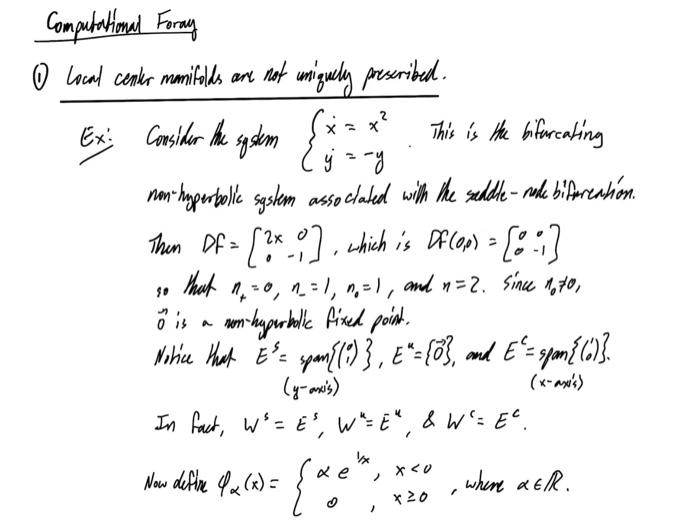 Computational Foray
① Local center manifolds are not uniquely prescribed.
Ex: Consider the system { ẋ = x² , ẏ = -y . This is the bifurcating
non-hyperbolic system associated with the saddle-node bifurcation.
Then Df = [2x 0; 0 -1], which is Df(0,0) = [0 0; 0 -1]
so that n₊ = 0, n₋ = 1, n₀ = 1, and n = 2. Since n₀ ≠ 0,
0⃗ is a non-hyperbolic fixed point.
Notice that Eˢ = span{(0 1)}, Eᵘ = {0⃗}, and Eᶜ = span{(1 0)}.
(y-axis) (x-axis)
In fact, Wˢ = Eˢ, Wᵘ = Eᵘ, & Wᶜ = Eᶜ.
Now define φ_α(x) = { α e^{1/x}, x < 0 ; 0, x ≥ 0 , where α ∈ ℝ.